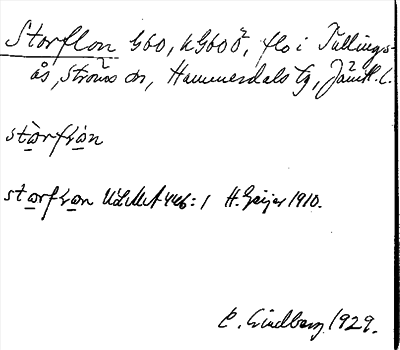 Storflon G60, KG60Ö², flo i Tullings-
ås, Ströms sn, Hammerdals tg, Jämtl. l.
stòrfrȯn
storfron ULMA 446:1 H. Geijer 1910.
C. Lindberg 1929.